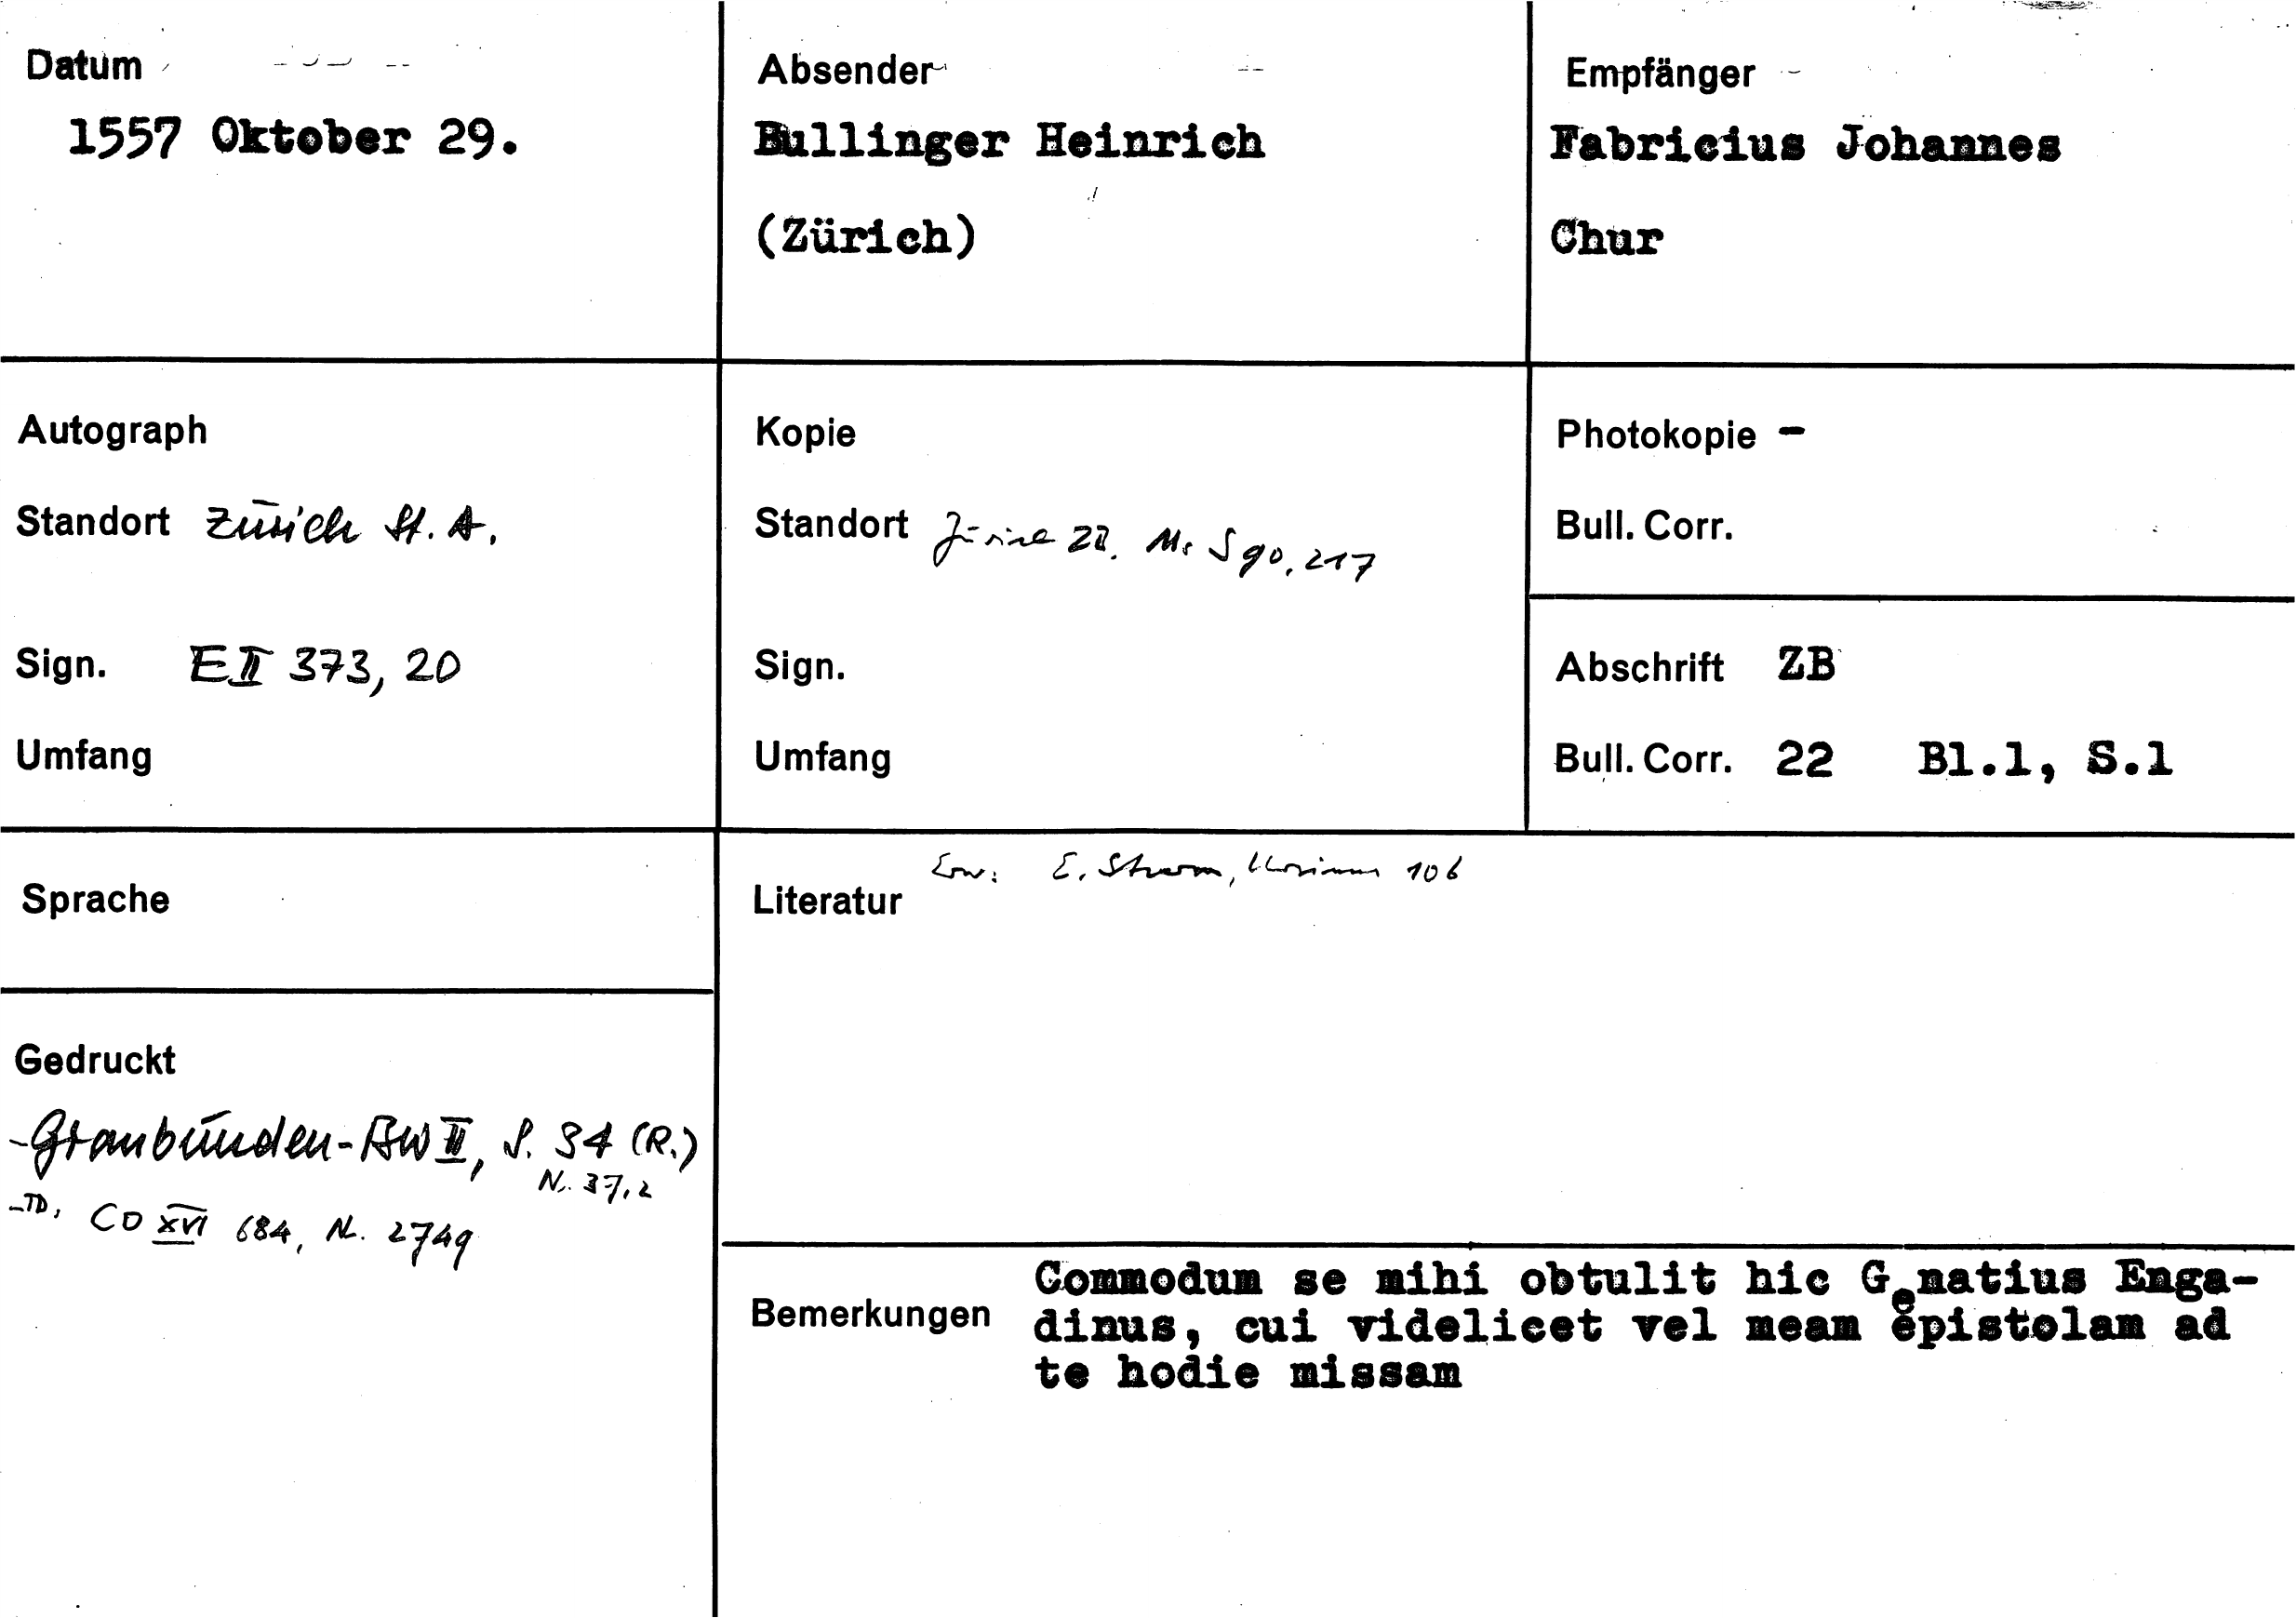 Datum
1557 Oktober 29.
Absender
Bullinger Heinrich
(Zürich)
Empfänger
Fabricius Johannes
Chur
Autograph
Standort Zürich St. A.
Sign. E II 373, 20
Umfang
Kopie
Standort Zürich ZB. Ms S 90, 217
Sign.
Umfang
Photokopie -
Bull. Corr.
Abschrift ZB
Bull. Corr. 22 Bl.1, S.1
Sprache
Gedruckt
-Graubünden-BW II, S. 34 (R.)
N. 37,2
-TD, CO XVI 684, N. 2749
Erw: E. Sturm, Ursinus 106
Literatur
Bemerkungen
Commodum se mihi obtulit hic Genatius Enga-
dinus, cui videlicet vel meam epistolam ad
te hodie missam